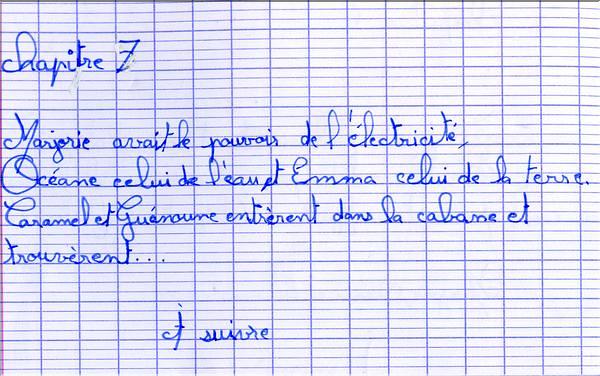 chapitre 7
Marjorie avait le pouvoir de l'électricité,
Océane celui de l'eau et Emma celui de la terre.
Caramel et Guénoune entrèrent dans la cabane et
trouvèrent...
À suivre